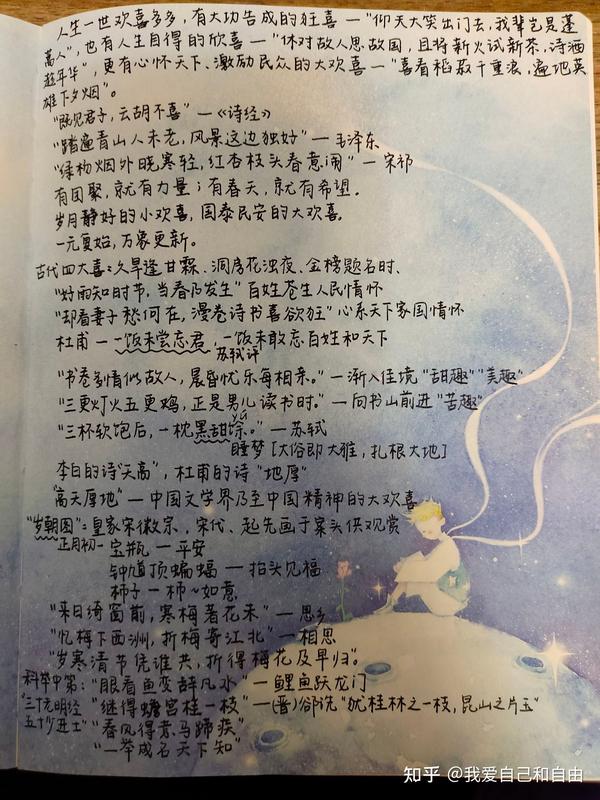 人生一世欢喜多多，有大功告成的狂喜—“仰天大笑出门去，我辈岂是蓬
蒿人”，也有人生自得的欣喜—“休对故人思故国，且将新火试新茶，诗酒
趁年华”，更有心怀天下、激励民众的大欢喜—“喜看稻菽千重浪，遍地英
雄下夕烟”。
“既见君子，云胡不喜”—《诗经》
“踏遍青山人未老，风景这边独好”—毛泽东
“绿杨烟外晓寒轻，红杏枝头春意闹”—宋祁
有团聚，就有力量；有春天，就有希望。
岁月静好的小欢喜，国泰民安的大欢喜。
一元复始，万象更新。
古代四大喜：久旱逢甘霖、洞房花烛夜、金榜题名时、
“好雨知时节，当春乃发生”百姓苍生人民情怀
“却看妻子愁何在，漫卷诗书喜欲狂”心系天下家国情怀
杜甫—一饭未尝忘君，一饭未敢忘百姓和天下
苏轼评
“书卷多情似故人，晨昏忧乐每相亲。”—渐入佳境“甜趣”“美趣”
“三更灯火五更鸡，正是男儿读书时。”—向书山前进“苦趣”
“三杯软饱后，一枕黑甜馀。”—苏轼
睡梦[大俗即大雅，扎根大地]
李白的诗“天高”，杜甫的诗“地厚”
“高天厚地”—中国文学界乃至中国精神的大欢喜
“岁朝图”：皇家宋徽宗、宋代、起先画于案头供观赏
正月初一 宝瓶—平安
钟馗顶蝙蝠—抬头见福
柿子—柿~如意
“来日绮窗前，寒梅著花未”—思乡
“忆梅下西洲，折梅寄江北”—相思
“岁寒清节凭谁共，折得梅花及早归”。
科举中第：“眼看鱼变辞凡水”—鲤鱼跃龙门
“三十老明经 “继得蟾宫桂一枝”—(晋)郤诜“犹桂林之一枝，昆山之片玉”
五十少进士” “春风得意马蹄疾”
“一举成名天下知”
知乎 @我爱自己和自由